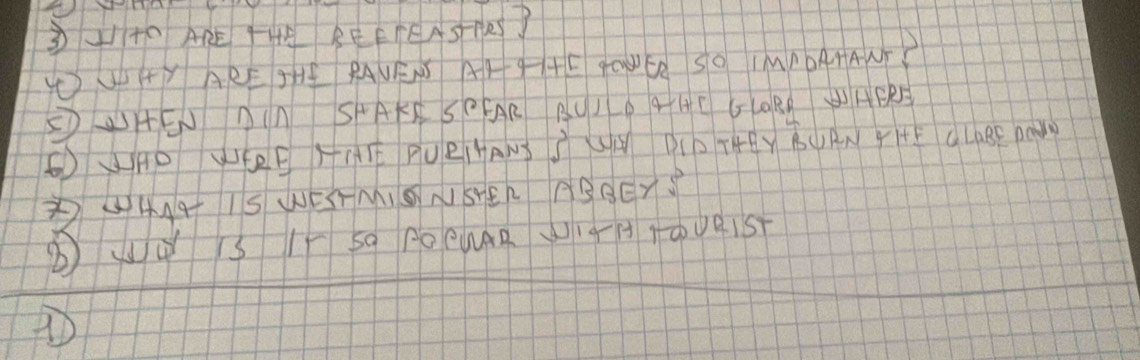 2) WHAT
3) WHO ARE THE BEEFEASTERS?
4) WHY ARE THE RAVENS AT THE TOWER SO IMPORTANT?
5) WHEN DID SHAKE SPEAR BUILD THE GLOBE WHERE
6) WHO WERE THE PURITANS? WHY DID THEY BURN THE GLOBE DOWN
7) WHAT IS WESTMIONSTER ABBEY?
8) WY IS IT SO POPULAR WITH TOURIST
1)